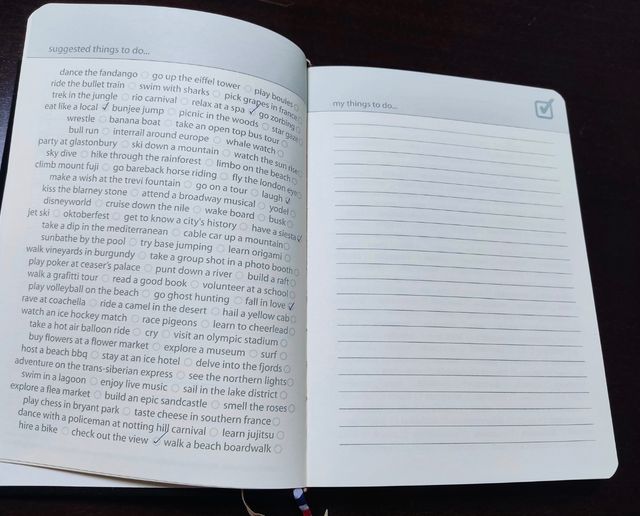 suggested things to do...
dance the fandango ○ go up the eiffel tower ○ play boules ○
ride the bullet train ○ swim with sharks ○ pick grapes in france ○
trek in the jungle ○ rio carnival ○ relax at a spa ✓ go zorbing ○
eat like a local ✓ bunjee jump ○ picnic in the woods ○ star gaze ○
wrestle ○ banana boat ○ take an open top bus tour ○
bull run ○ interrail around europe ○ whale watch ○
party at glastonbury ○ ski down a mountain ○ watch the sun rise ○
sky dive ○ hike through the rainforest ○ limbo on the beach ○
climb mount fuji ○ go bareback horse riding ○ fly the london eye ○
make a wish at the trevi fountain ○ go on a tour ○ laugh ✓
kiss the blarney stone ○ attend a broadway musical ○ yodel ○
disneyworld ○ cruise down the nile ○ wake board ○ busk ○
jet ski ○ oktoberfest ○ get to know a city's history ○ have a siesta ✓
take a dip in the mediterranean ○ cable car up a mountain ○
sunbathe by the pool ○ try base jumping ○ learn origami ○
walk vineyards in burgundy ○ take a group shot in a photo booth ○
play poker at ceaser's palace ○ punt down a river ○ build a raft ○
walk a grafitti tour ○ read a good book ○ volunteer at a school ○
play volleyball on the beach ○ go ghost hunting ○ fall in love ✓
rave at coachella ○ ride a camel in the desert ○ hail a yellow cab ○
watch an ice hockey match ○ race pigeons ○ learn to cheerlead ○
take a hot air balloon ride ○ cry ○ visit an olympic stadium ○
buy flowers at a flower market ○ explore a museum ○ surf ○
host a beach bbq ○ stay at an ice hotel ○ delve into the fjords ○
adventure on the trans-siberian express ○ see the northern lights ○
swim in a lagoon ○ enjoy live music ○ sail in the lake district ○
explore a flea market ○ build an epic sandcastle ○ smell the roses ○
play chess in bryant park ○ taste cheese in southern france ○
dance with a policeman at notting hill carnival ○ learn jujitsu ○
hire a bike ○ check out the view ✓ walk a beach boardwalk ○
my things to do...